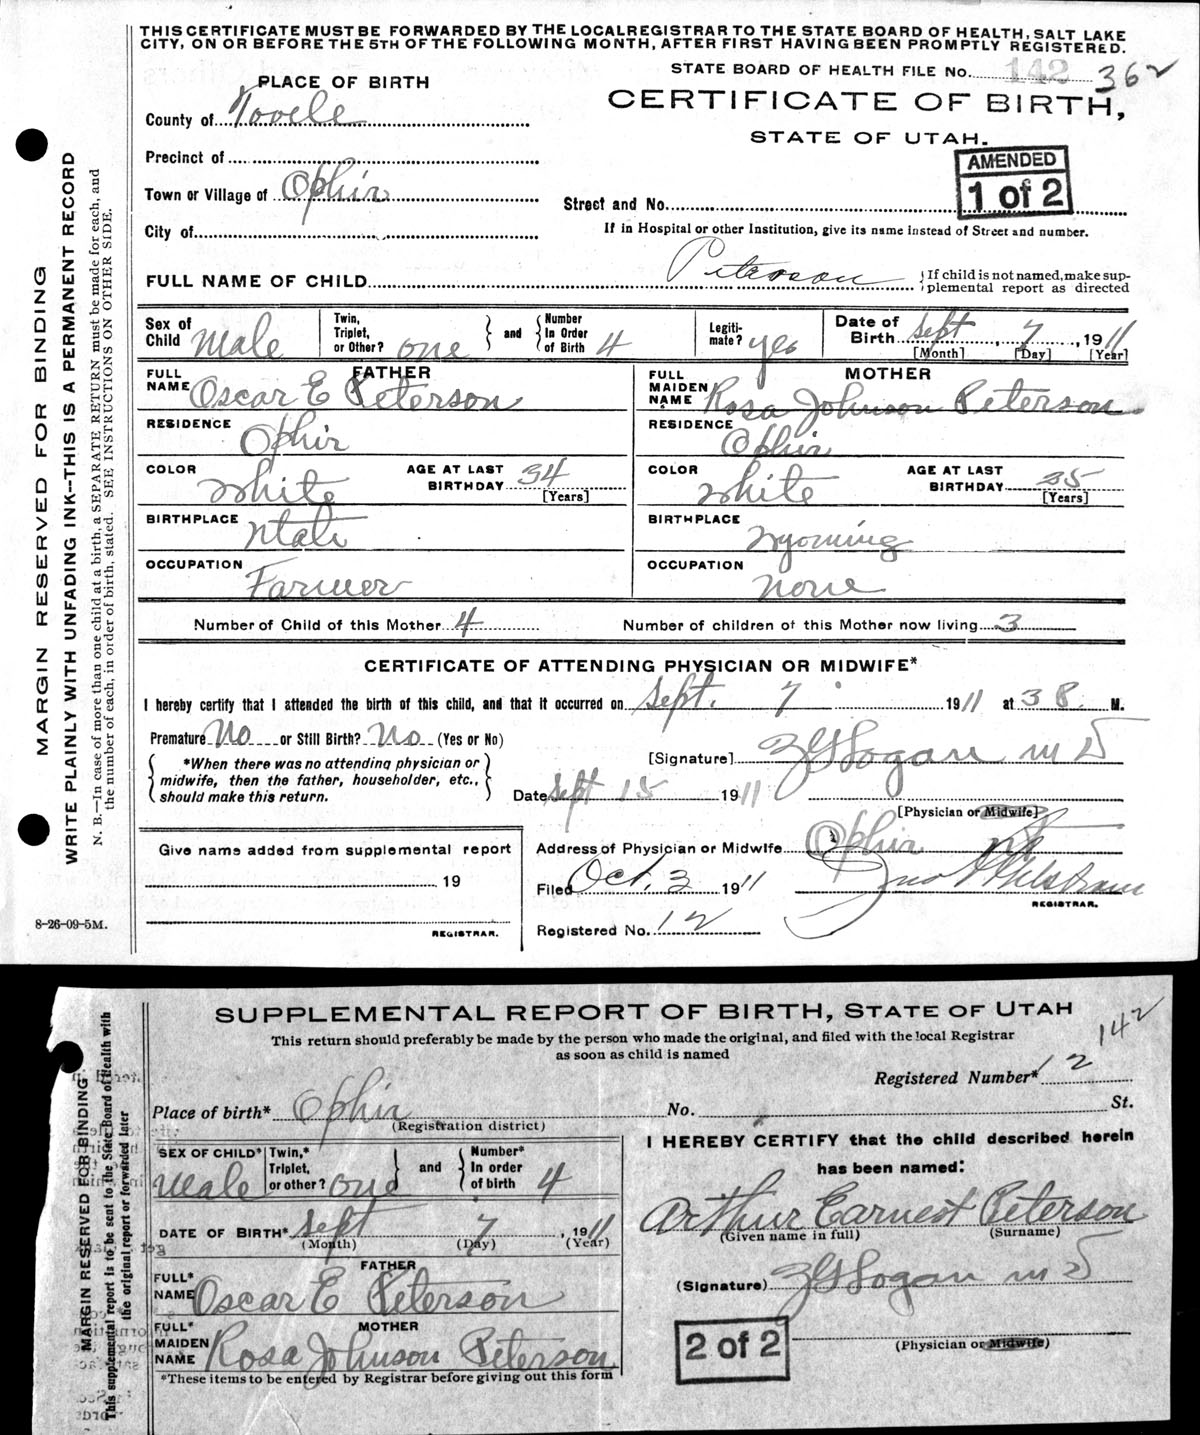 THIS CERTIFICATE MUST BE FORWARDED BY THE LOCAL REGISTRAR TO THE STATE BOARD OF HEALTH, SALT LAKE
CITY, ON OR BEFORE THE 5TH OF THE FOLLOWING MONTH, AFTER FIRST HAVING BEEN PROMPTLY REGISTERED.
PLACE OF BIRTH
STATE BOARD OF HEALTH FILE No. 142 362
CERTIFICATE OF BIRTH,
STATE OF UTAH.
County of Tooele
Precinct of
Town or Village of Ophir
City of
AMENDED
1 of 2
Street and No.
If in Hospital or other Institution, give its name instead of Street and number.
FULL NAME OF CHILD Peterson
If child is not named, make sup-
plemental report as directed
Sex of Child Male
Twin, Triplet, or Other? one and Number In Order of Birth 4
Legiti-mate? yes
Date of Birth Sept 7, 1911
[Month] [Day] [Year]
FATHER
FULL NAME Oscar E Peterson
RESIDENCE Ophir
COLOR White AGE AT LAST BIRTHDAY 34 [Years]
BIRTHPLACE Utah
OCCUPATION Farmer
MOTHER
FULL MAIDEN NAME Rosa Johnson Peterson
RESIDENCE Ophir
COLOR White AGE AT LAST BIRTHDAY 35 [Years]
BIRTHPLACE Wyoming
OCCUPATION None
Number of Child of this Mother 4 Number of children of this Mother now living 3
CERTIFICATE OF ATTENDING PHYSICIAN OR MIDWIFE*
I hereby certify that I attended the birth of this child, and that it occurred on Sept. 7 1911 at 3 M.
Premature No or Still Birth? No (Yes or No)
*When there was no attending physician or
midwife, then the father, householder, etc.,
should make this return.
[Signature] Logan M D
Date Sept 15 1911
[Physician or Midwife]
Give name added from supplemental report
19
REGISTRAR.
Address of Physician or Midwife Ophir
Filed Oct. 3 1911
REGISTRAR.
Registered No. 12
MARGIN RESERVED FOR BINDING
WRITE PLAINLY WITH UNFADING INK--THIS IS A PERMANENT RECORD
N. B.—In case of more than one child at a birth, a SEPARATE RETURN must be made for each, and
the number of each, in order of birth, stated. SEE INSTRUCTIONS ON OTHER SIDE.
8-26-09-5M.
SUPPLEMENTAL REPORT OF BIRTH, STATE OF UTAH
142
This return should preferably be made by the person who made the original, and filed with the local Registrar
as soon as child is named
Registered Number* 12
Place of birth* Ophir No. St.
(Registration district)
SEX OF CHILD* Male
Twin,* Triplet, or other? one and Number* In order of birth 4
DATE OF BIRTH* Sept 7, 1911
(Month) (Day) (Year)
FATHER
FULL* NAME Oscar E Peterson
MOTHER
FULL* MAIDEN NAME Rosa Johnson Peterson
*These items to be entered by Registrar before giving out this form
I HEREBY CERTIFY that the child described herein
has been named:
Arthur Earnest Peterson
(Given name in full) (Surname)
(Signature) Logan M D
2 of 2
(Physician or Midwife)
MARGIN RESERVED FOR BINDING
This supplemental report is to be sent to the State Board of Health with
the original report or forwarded later